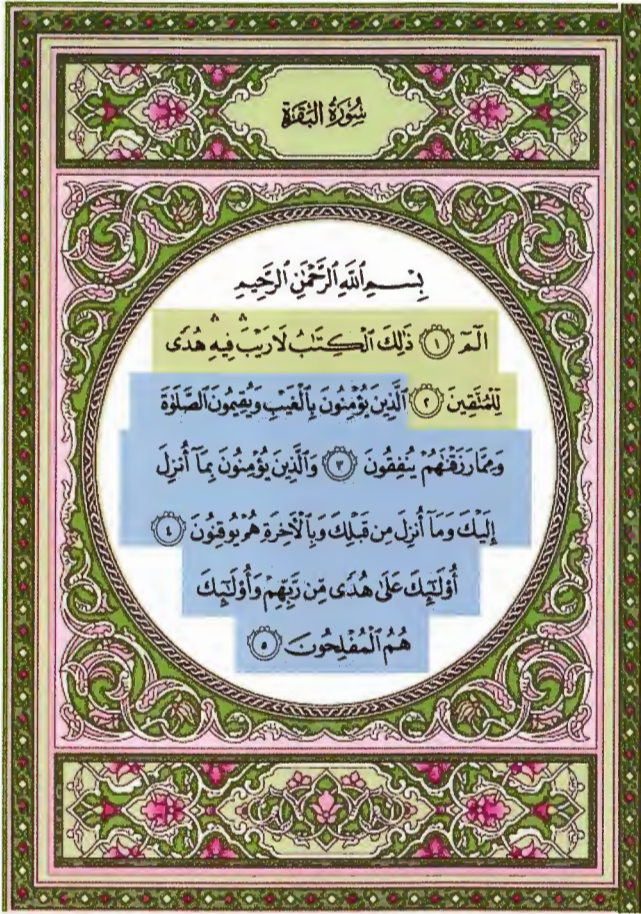 سُورَةُ البَقَرَةِ
بِسْمِ ٱللَّهِ ٱلرَّحْمَٰنِ ٱلرَّحِيمِ
الٓمٓ ۝١ ذَٰلِكَ ٱلْكِتَٰبُ لَا رَيْبَ ۛ فِيهِ ۛ هُدًى
لِّلْمُتَّقِينَ ۝٢ ٱلَّذِينَ يُؤْمِنُونَ بِٱلْغَيْبِ وَيُقِيمُونَ ٱلصَّلَوٰةَ
وَمِمَّا رَزَقْنَٰهُمْ يُنفِقُونَ ۝٣ وَٱلَّذِينَ يُؤْمِنُونَ بِمَآ أُنزِلَ
إِلَيْكَ وَمَآ أُنزِلَ مِن قَبْلِكَ وَبِٱلْءَاخِرَةِ هُمْ يُوقِنُونَ ۝٤
أُو۟لَٰٓئِكَ عَلَىٰ هُدًى مِّن رَّبِّهِمْ وَأُو۟لَٰٓئِكَ
هُمُ ٱلْمُفْلِحُونَ ۝٥